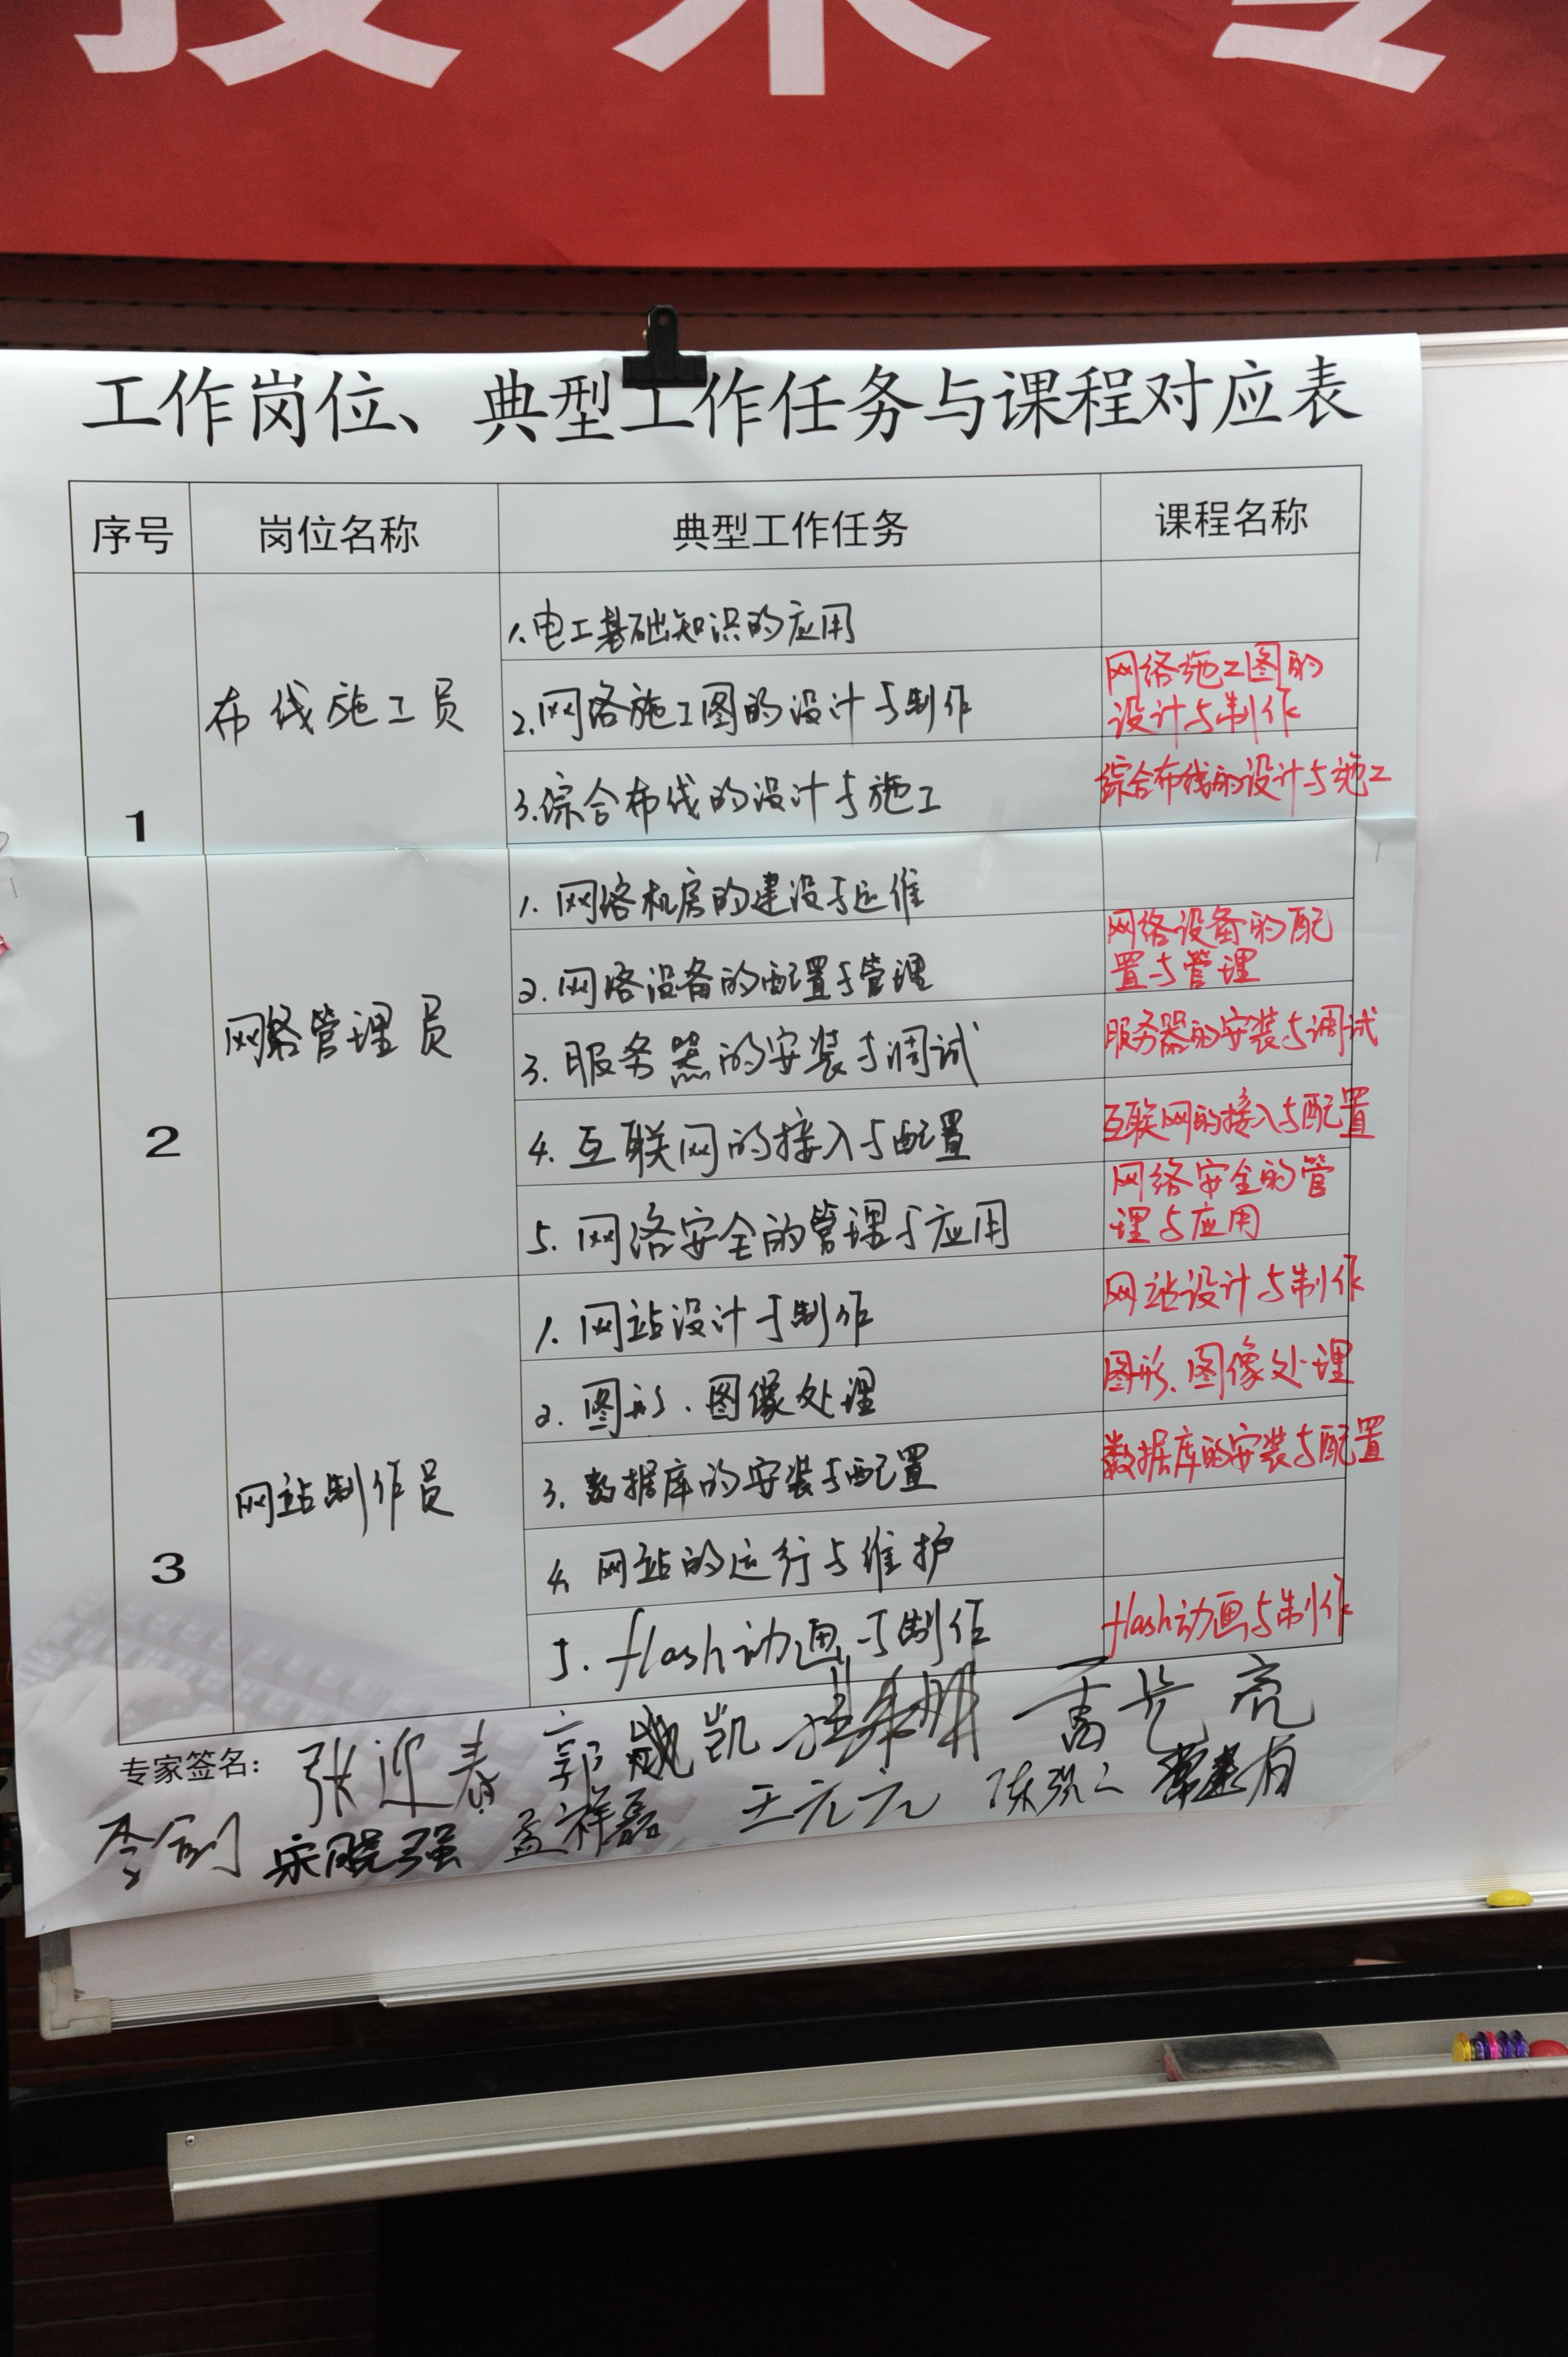 技术专
工作岗位、典型工作任务与课程对应表
序号 岗位名称 典型工作任务 课程名称
1 布线施工员
1.电工基础知识的应用
2.网络施工图的设计与制作
网络施工图的
设计与制作
3.综合布线的设计与施工
综合布线的设计与施工
2 网络管理员
1.网络机房的建设与运维
2.网络设备的配置与管理
网络设备的配
置与管理
3.服务器的安装与调试
服务器的安装与调试
4.互联网的接入与配置
互联网的接入与配置
5.网络安全的管理与应用
网络安全的管
理与应用
3 网站制作员
1.网站设计与制作
网站设计与制作
2.图形、图像处理
图形、图像处理
3.数据库的安装与配置
数据库的安装与配置
4.网站的运行与维护
5.flash动画与制作
flash动画与制作
专家签名: 张迎春
宋晓强 孟祥磊 王元元